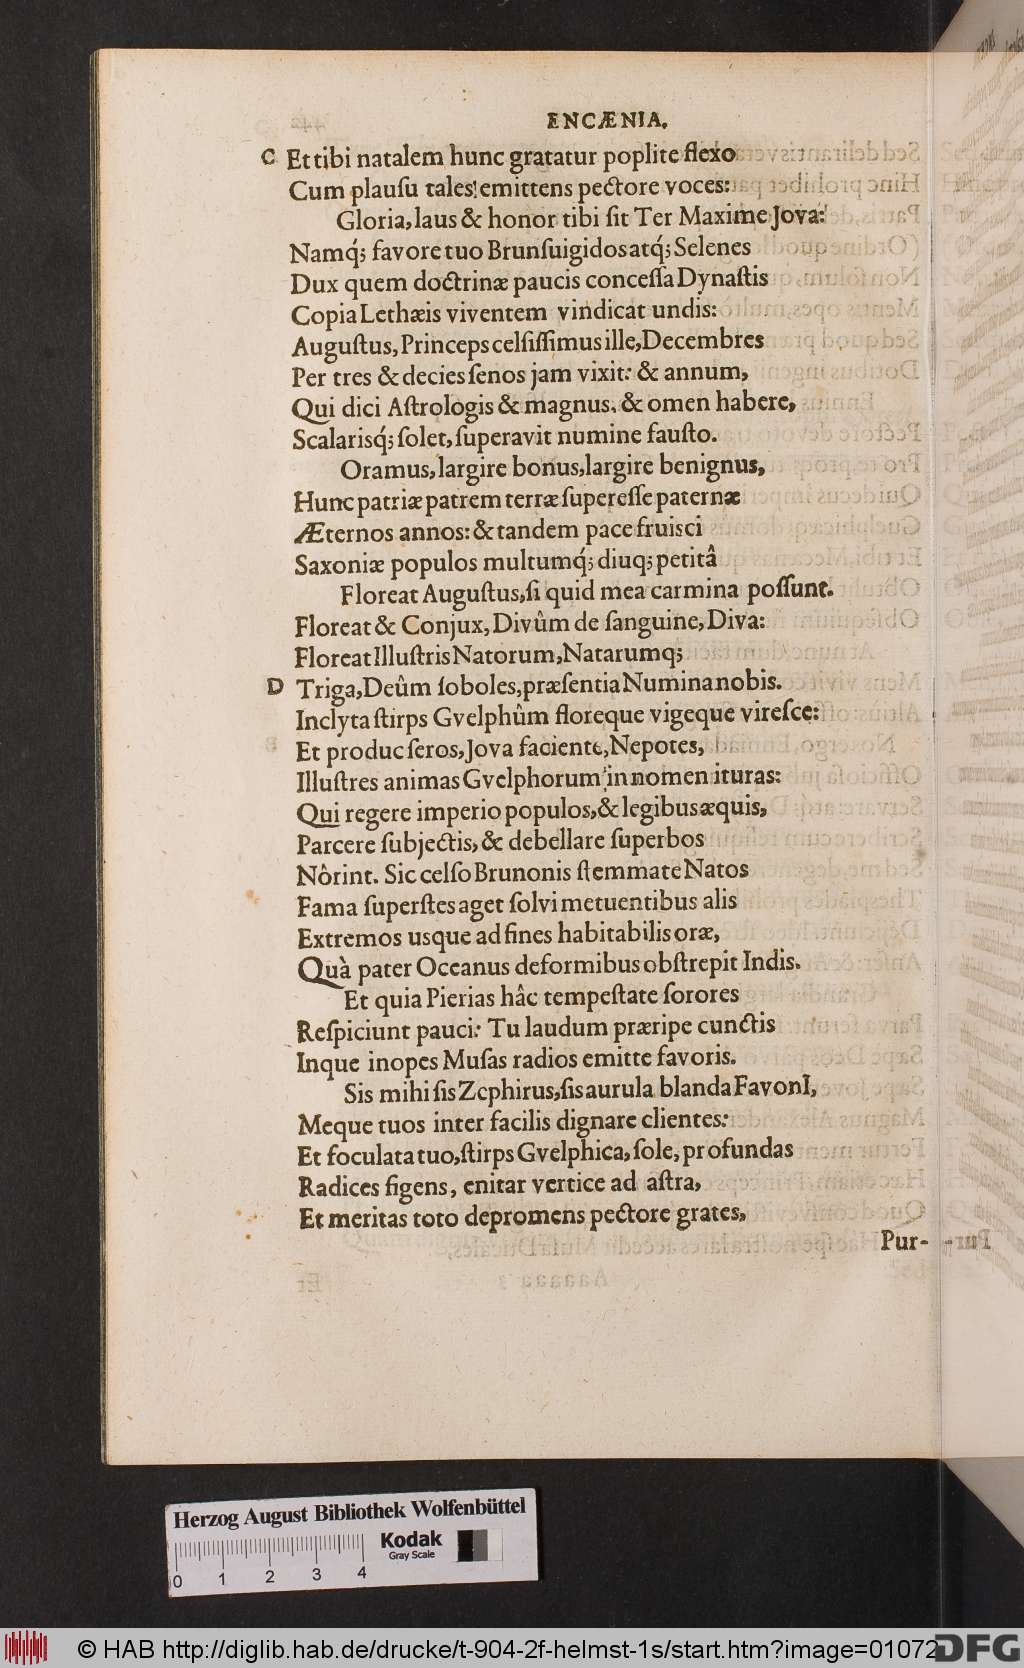 ENCÆNIA.
C Et tibi natalem hunc gratatur poplite flexo
Cum plauſu tales emittens pectore voces:
Gloria, laus & honor tibi ſit Ter Maxime Jova:
Namq́; favore tuo Brunſuigidos atq́; Selenes
Dux quem doctrinæ paucis conceſſa Dynaſtis
Copia Lethæis viventem vindicat undis:
Auguſtus, Princeps celſiſſimus ille, Decembres
Per tres & decies ſenos jam vixit: & annum,
Qui dici Aſtrologis & magnus, & omen habere,
Scalarisq́; ſolet, ſuperavit numine fauſto.
Oramus, largire bonus, largire benignus,
Hunc patriæ patrem terræ ſupereſſe paternæ
Æternos annos: & tandem pace fruisci
Saxoniæ populos multumq́; diuq; petitâ
Floreat Auguſtus, ſi quid mea carmina poſſunt.
Floreat & Conjux, Divûm de ſanguine, Diva:
Floreat Illuſtris Natorum, Natarumq;
D Triga, Deûm ſoboles, præſentia Numina nobis.
Inclyta ſtirps Gvelphûm floreque vigeque vireſce:
Et produc ſeros, Jova faciente, Nepotes,
Illuſtres animas Gvelphorum in nomen ituras:
Qui regere imperio populos, & legibus æquis,
Parcere ſubjectis, & debellare ſuperbos
Nôrint. Sic celſo Brunonis ſtemmate Natos
Fama ſuperſtes aget ſolvi metuentibus alis
Extremos usque ad fines habitabilis oræ,
Quà pater Oceanus deformibus obſtrepit Indis.
Et quia Pierias hâc tempeſtate ſorores
Reſpiciunt pauci: Tu laudum præripe cunctis
Inque inopes Muſas radios emitte favoris.
Sis mihi ſis Zephirus, ſis aurula blanda FavonI,
Meque tuos inter facilis dignare clientes:
Et foculata tuo, ſtirps Gvelphica, ſole, profundas
Radices figens, enitar vertice ad aſtra,
Et meritas toto depromens pectore grates,
Pur-
Herzog August Bibliothek Wolfenbüttel
Kodak
Gray Scale
0 1 2 3 4
© HAB http://diglib.hab.de/drucke/t-904-2f-helmst-1s/start.htm?image=01072
DFG